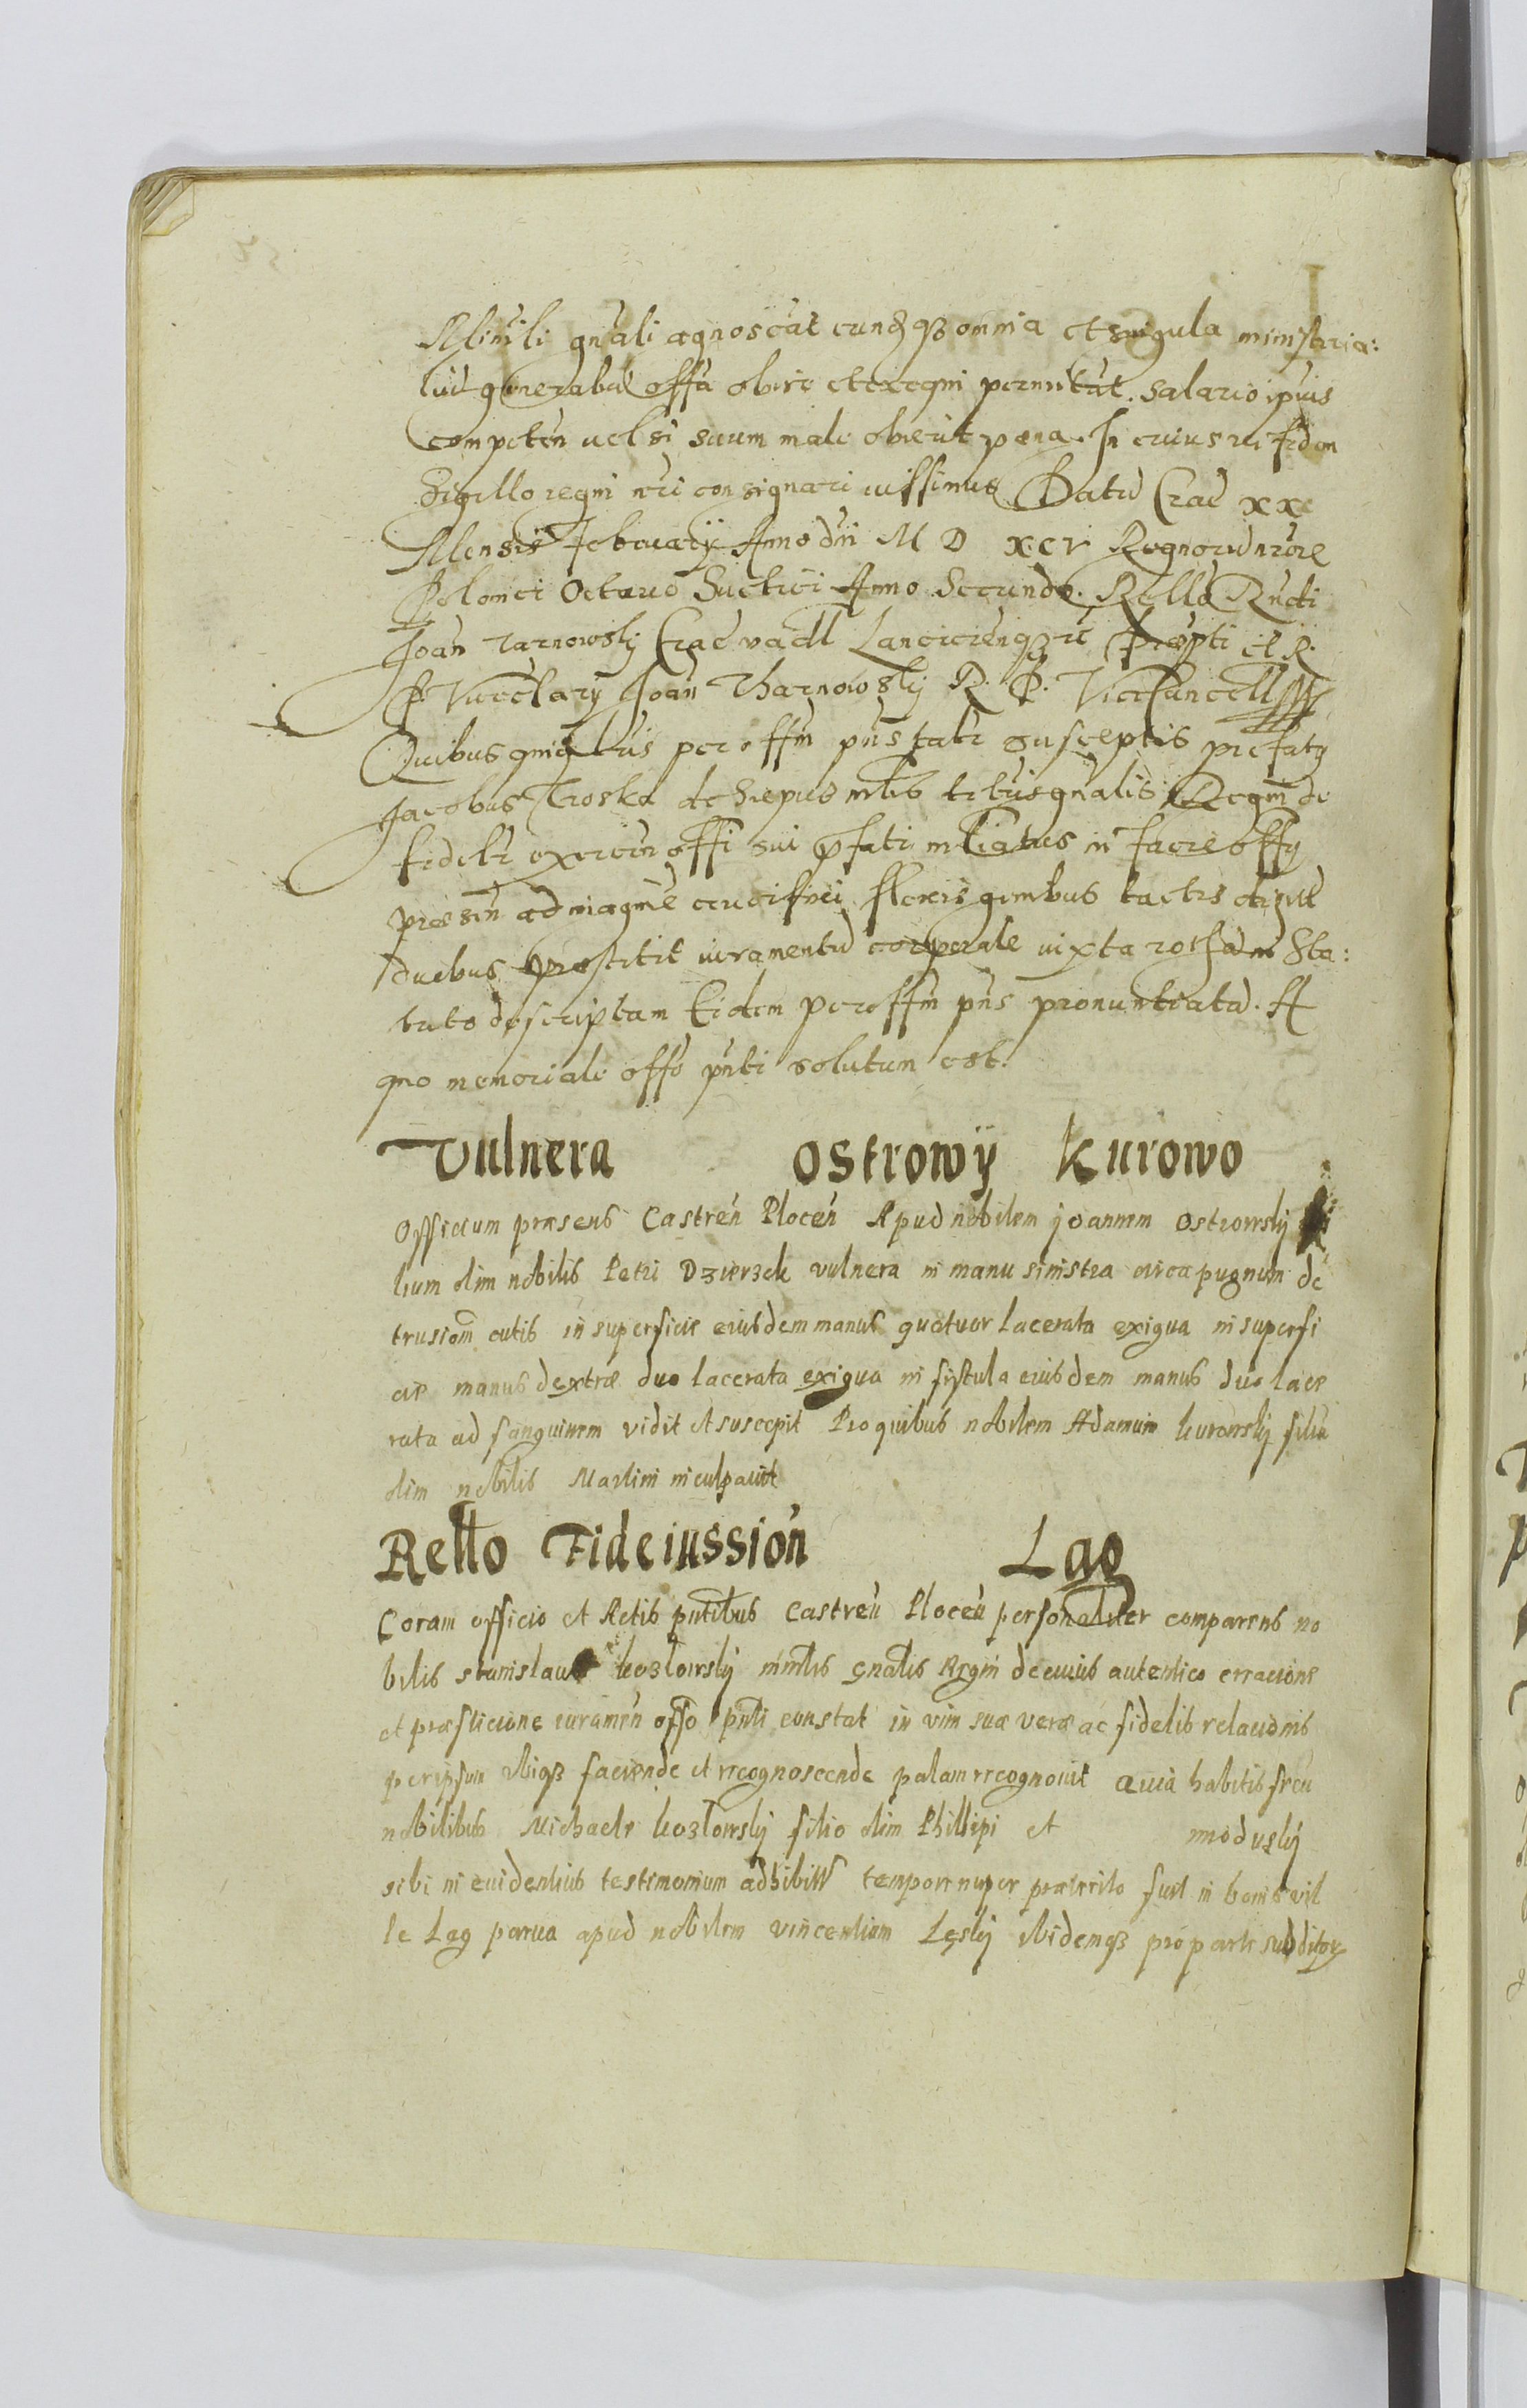 Ministeriali gnali agnoscat eundqz omnia et singula ministeria:
liu generalium offa obire et exequi permittat. Salario ipsius
competen vel si suum male obierit pœna. In cuius rei fidem
Sigillo regni nri consignari iussimus Datu Crac xx
Mensis Februarij Anno dni M D xcv Regnorum nrorum
Polonici Octavo Suetici Anno Secundo. Rello Rndi
Joan Tarnowskij Crac vadl Lanciciensqz Præpti et R.
P. Vicecancellarij Joan Tharnowskij R. P. Vicecancell
Quibus quidem lris per offm pns tali susceptis præfatus
Jacobus Troska de Siepus mtlis trtius gnalis Regni de
fideli exercen offi sui præfati mliatus in facie offy
presen ad imagine crucifixi flexis genibus tactis digitis
duobus præstitit iuramentum corporale iuxta rotham in Sta:
tuto descriptam Eidem per offm pns pronuntiatam. A
quo memoriale offo pnti solutum est.
Vulnera Ostrowÿ Kurowo
Officium præsens Castren Plocen Apud nobilem Joannem Ostrowskij fi
lium olim nobilis Petri Dzierzek vulnera in manu sinistra circa pugnum de
trusiom cutis in superficie eiusdem manus quatuor lacerata exigua in superfi
cie manus dextræ duo lacerata exigua in fistula eiusdem manus duo lace
rata ad sanguinem vidit et suscepit Pro quibus nobilem Adamum Kurowskij filiu
olim nobilis Martini inculpavit
Rello Fideiussion Lag
Coram officio et Actis pntibus Castren Plocen personaliter comparens no
bilis Stanislaus Kozlowskij mntlis gnalis Regni de cuius autentico erracione
et præsticione iuramen offo pnti constat in vim suæ veræ ac fidelis relacionis
per ipsum ubiqz faciende et recognoscende palam recognovit Quia habitis secu
nobilibus Michaele Kozlowskij filio olim Phillipi et moduskij
sibi in evidentius testimonium adhibitis tempore nuper præterito fuit in bonis vil
le Lag parva apud nobilem Vincentium Lęskij ibidemqz pro parte subditor